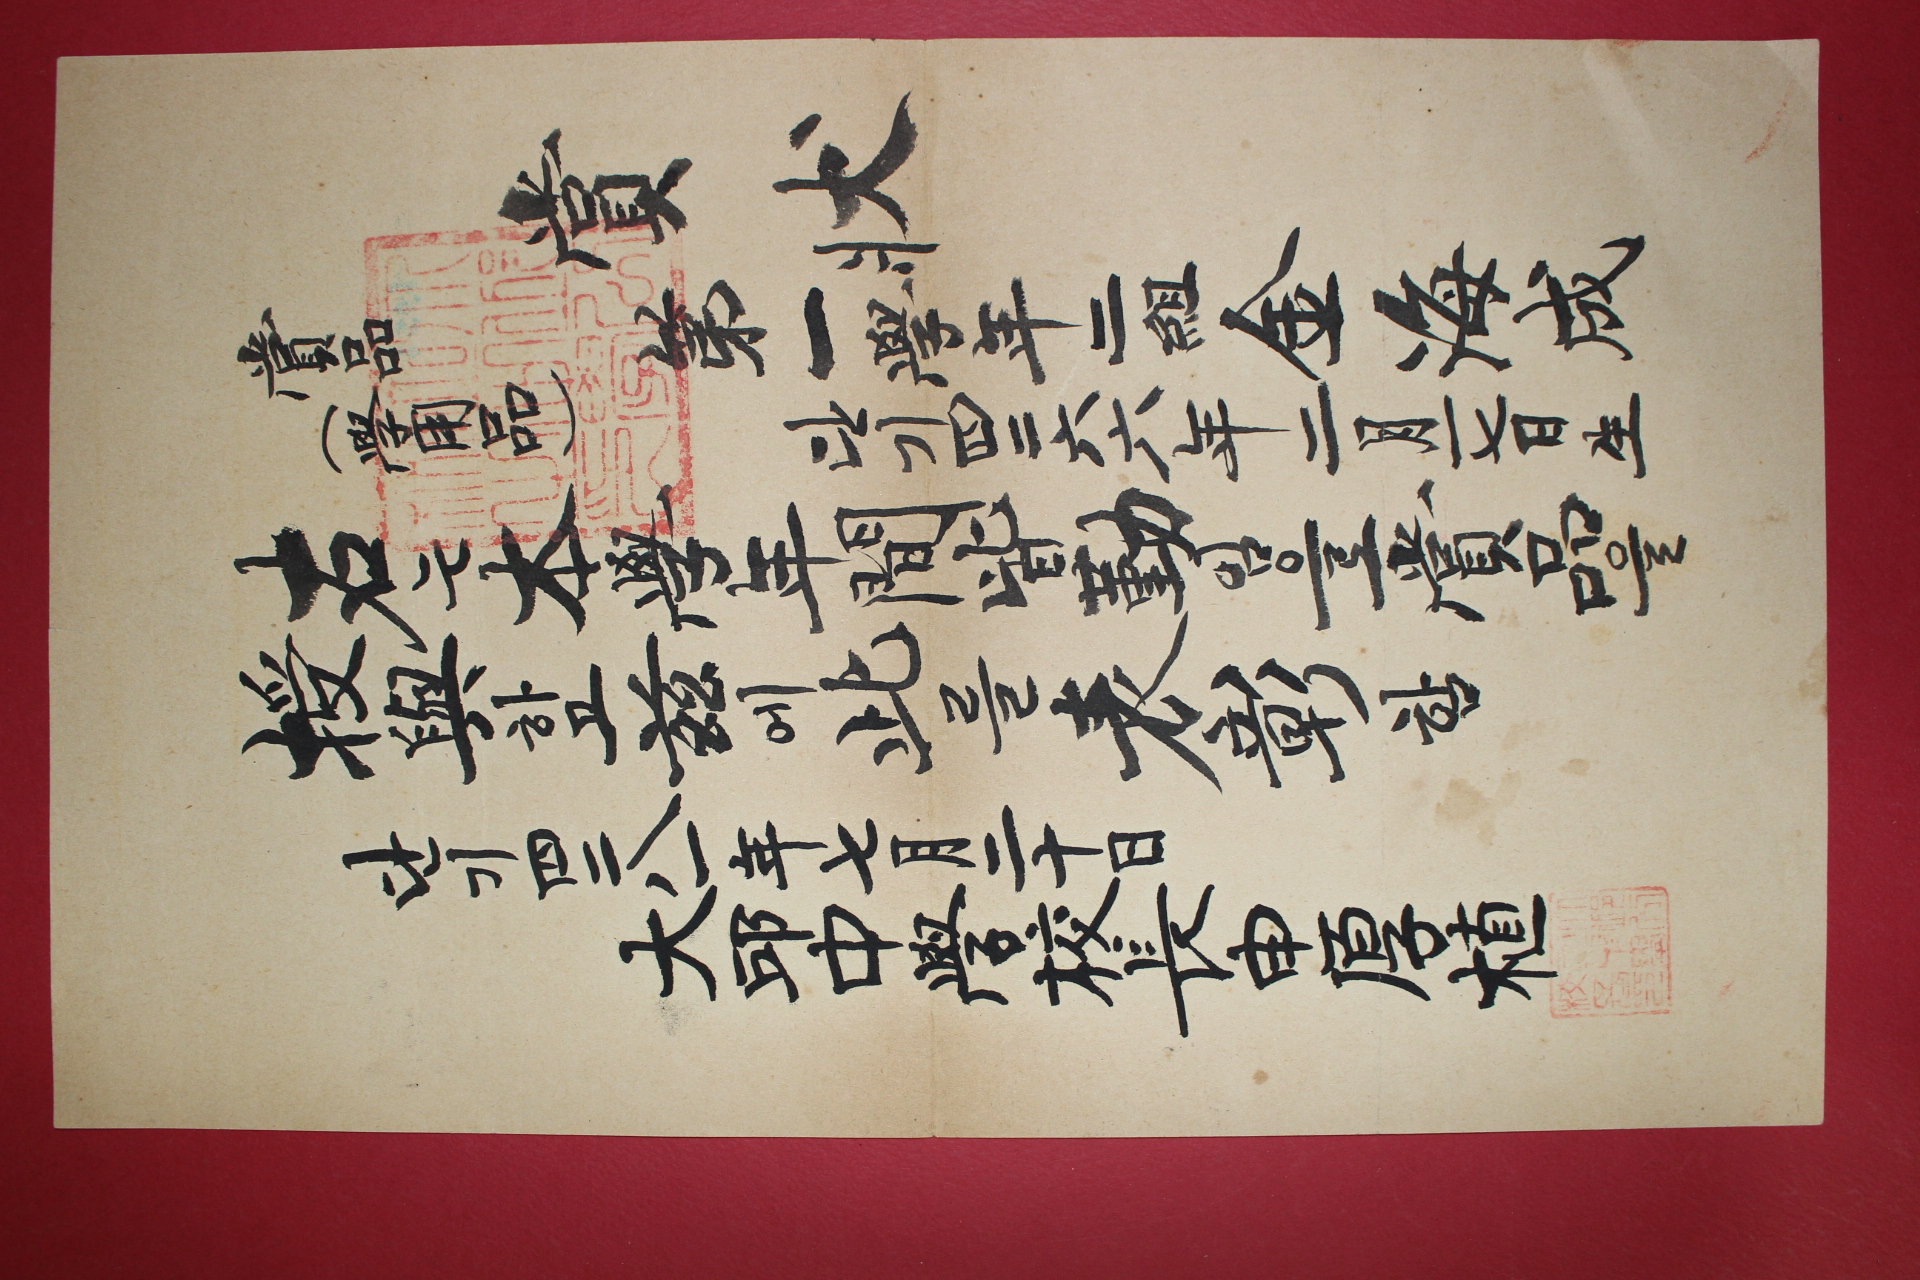 賞狀
第一學年二組金海成
단기四二六六年二月一七日生
賞品
(學用品)
右는本學年間皆勤임으로賞品을
授與하고玆에此를表彰함
단기四二八一年七月二十日
大邱中學校長申厚植